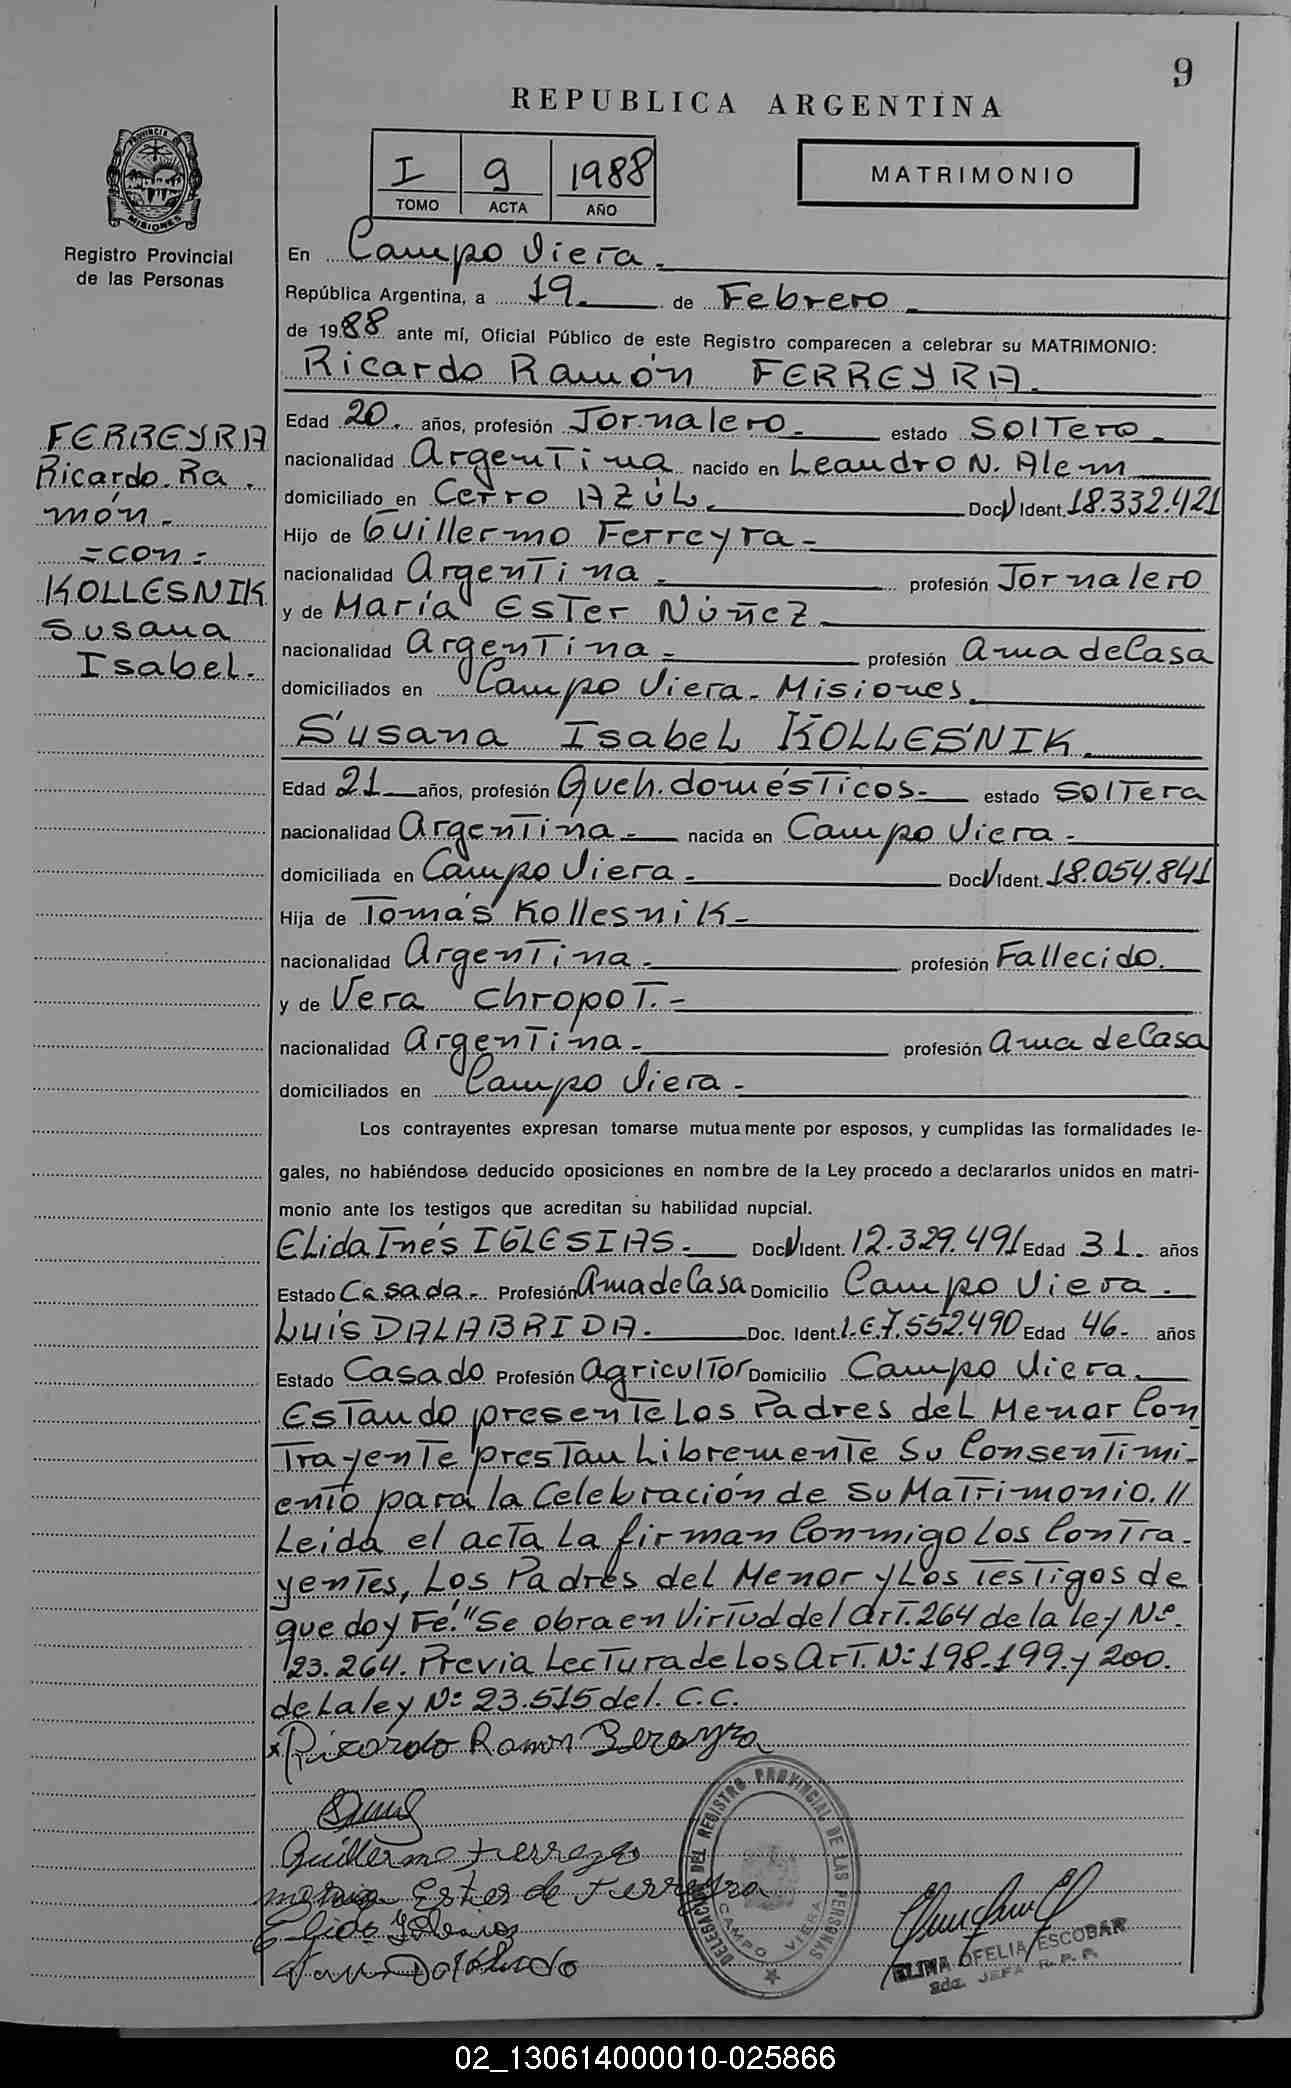 9
REPUBLICA ARGENTINA
PROVINCIA DE
MISIONES
Registro Provincial
de las Personas
I 9 1988
TOMO ACTA AÑO
MATRIMONIO
En Campo Viera.
República Argentina, a 19. de Febrero.
de 1988 ante mí, Oficial Público de este Registro comparecen a celebrar su MATRIMONIO:
Ricardo Ramón FERREYRA.
FERREYRA
Ricardo Ra
món.
=con=
KOLLESNIK
Susana
Isabel.
Edad 20. años, profesión Jornalero. estado Soltero.
nacionalidad Argentina nacido en Leandro N. Alem
domiciliado en Cerro AZÚL. Doc. Ident. 18.332.421
Hijo de Guillermo Ferreyra-
nacionalidad Argentina. profesión Jornalero
y de María Ester Núñez.
nacionalidad Argentina. profesión Ama de Casa
domiciliados en Campo Viera. Misiones.
Susana Isabel KOLLESNIK.
Edad 21 años, profesión Queh. domésticos. estado Soltera
nacionalidad Argentina. nacida en Campo Viera.
domiciliada en Campo Viera. Doc. Ident. 18.054.841
Hija de Tomás Kollesnik-
nacionalidad Argentina. profesión Fallecido.
y de Vera Chropot.-
nacionalidad Argentina. profesión Ama de Casa
domiciliados en Campo Viera.
Los contrayentes expresan tomarse mutuamente por esposos, y cumplidas las formalidades le-
gales, no habiéndose deducido oposiciones en nombre de la Ley procedo a declararlos unidos en matri-
monio ante los testigos que acreditan su habilidad nupcial.
Elida Inés IGLESIAS. Doc. Ident. 12.329.491 Edad 31. años
Estado Casada. Profesión Ama de Casa Domicilio Campo Viera.
Luís DALABRIDA. Doc. Ident. L.E. 7.552.490 Edad 46- años
Estado Casado Profesión Agricultor Domicilio Campo Viera.
Estando presente Los Padres del Menor Con
Trayente prestan Libremente Su Consentimi-
ento para la Celebración de Su Matrimonio. //
Leída el acta La firman Conmigo Los Contra-
yentes, Los Padres del Menor y Los Testigos de
que doy Fé." Se obra en Virtud del Art. 264 de la ley Nº
23.264. Previa Lectura de Los Art. Nº 198-199. y 200.
de La ley Nº 23.515 del. C.C.
x Ricardo Ramon Ferayra
Guillermo Ferreyra
Ester de Ferreyra
DELEGACION DEL REGISTRO PROVINCIAL DE LAS PERSONAS
CAMPO VIERA
ELINA OFELIA ESCOBAR
JEFA R. P. P.
02_130614000010-025866